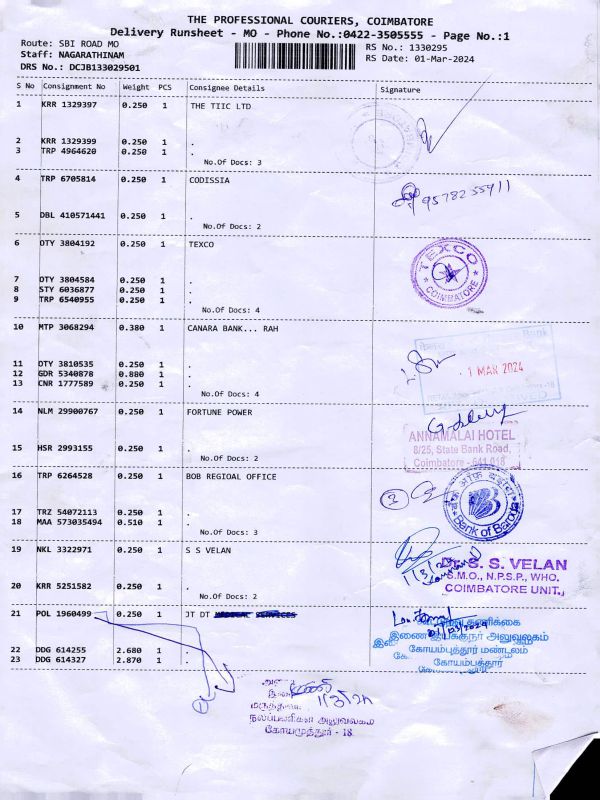 THE PROFESSIONAL COURIERS, COIMBATORE
Delivery Runsheet - MO - Phone No.:0422-3505555 - Page No.:1
Route: SBI ROAD MO
RS No.: 1330295
Staff: NAGARATHINAM
RS Date: 01-Mar-2024
DRS No.: DCJB133029501
S No Consignment No Weight PCS Consignee Details Signature
1 KRR 1329397 0.250 1 THE TIIC LTD
2 KRR 1329399 0.250 1 .
3 TRP 4964620 0.250 1 .
No.Of Docs: 3
4 TRP 6705814 0.250 1 CODISSIA
9578255911
5 DBL 410571441 0.250 1 .
No.Of Docs: 2
6 OTY 3804192 0.250 1 TEXCO
TEXCO
COIMBATORE
7 OTY 3804584 0.250 1 .
8 STY 6036877 0.250 1 .
9 TRP 6540955 0.250 1 .
No.Of Docs: 4
10 MTP 3068294 0.380 1 CANARA BANK... RAH
Bank
1 MAR 2024
11 OTY 3810535 0.250 1 .
12 GDR 5340878 0.880 1 .
13 CNR 1777589 0.250 1 .
No.Of Docs: 4
14 NLM 29900767 0.250 1 FORTUNE POWER
ANNAMALAI HOTEL
8/25, State Bank Road,
Coimbatore - 641 018
15 HSR 2993155 0.250 1 .
No.Of Docs: 2
16 TRP 6264528 0.250 1 BOB REGIOAL OFFICE
3
Bank of Baroda
17 TRZ 54072113 0.250 1 .
18 MAA 573035494 0.510 1 .
No.Of Docs: 3
19 NKL 3322971 0.250 1 S S VELAN
1/3/24
Dr. S. S. VELAN
S.M.O., N.P.S.P., WHO.
COIMBATORE UNIT.
20 KRR 5251582 0.250 1 .
No.Of Docs: 2
21 POL 1960499 0.250 1 JT DT MEDICAL SERVICES
01/03/2024
இணை இயக்குநர் அலுவலகம்
கோயம்புத்தூர் மண்டலம்
கோயம்பத்தூர்
22 DDG 614255 2.680 1 .
23 DDG 614327 2.870 1 .
1/3/24
நலப்பணிகள் அலுவலகம்
கோயமுத்தூர் - 18.